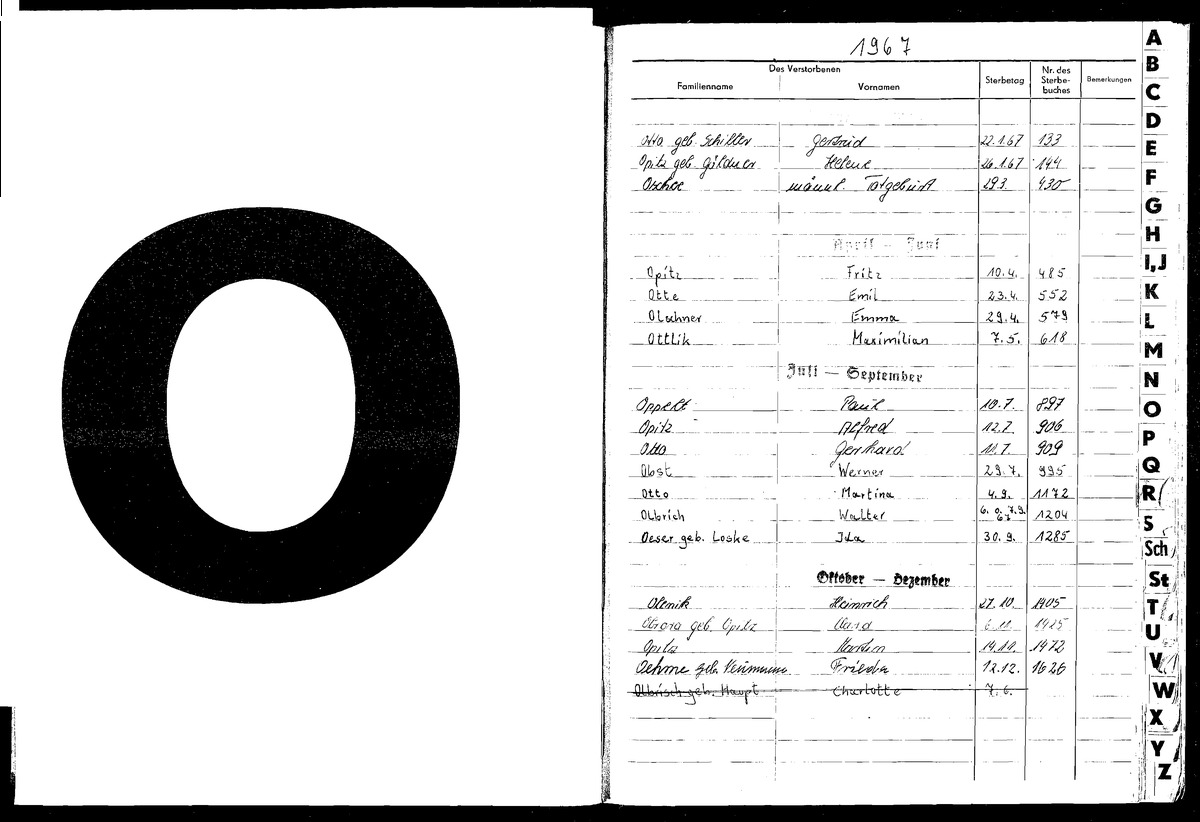 O
1967
Des Verstorbenen
Familienname Vornamen Sterbetag Nr. des Sterbe-buches Bemerkungen
Otto geb. Schiller Gertrud 22.1.67 133
Opitz geb. Göldner Helene 26.1.67 144
männl. Totgeburt 29.3. 430
April — Juni
Opitz Fritz 10.4. 485
Otte Emil 23.4. 552
Olschner Emma 29.4. 579
Ottlik Maximilian 7.5. 618
Juli — September
Oppelt Paul 10.7. 897
Opitz Alfred 12.7. 906
Otto Gerhard 11.7. 909
Obst Werner 29.7. 995
Otto Martina 4.9. 1172
Olbrich Walter 6. o. 7.9. 67 1204
Oeser geb. Loske Ida 30.9. 1285
Oktober — Dezember
Olenik Heinrich 27.10. 1405
geb. Opitz 6.11. 1425
Opitz 14.11. 1472
Oehme geb. Neumann Frieda 12.12. 1626
Olbrisch geb. Haupt Charlotte 7.6.
A
B
C
D
E
F
G
H
I,J
K
L
M
N
O
P
Q
R
S
Sch
St
T
U
V
W
X
Y
Z